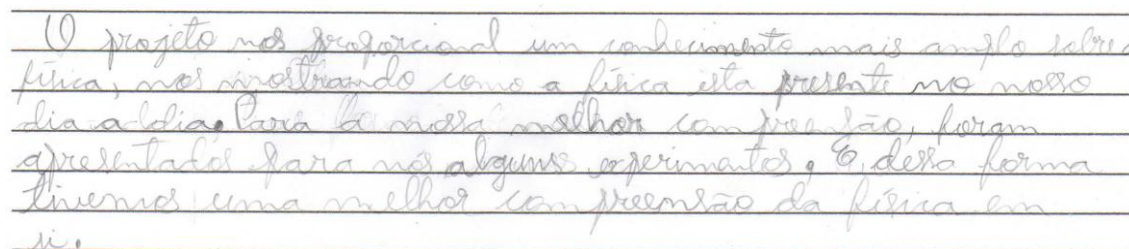 O projeto nos proporcional um conhecimento mais amplo sobre a
física, nos mostrando como a física esta presente no nosso
dia a dia. Para a nossa melhor compreensão, foram
apresentados para nós alguns experimentos, E dessa forma
tivemos uma melhor compreensão da física em
si.